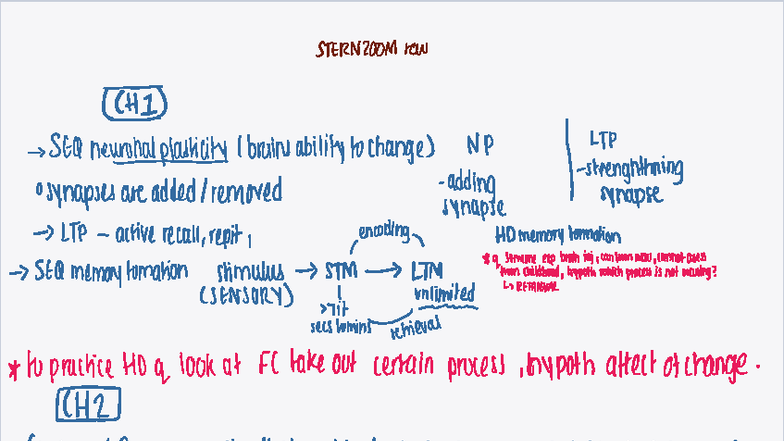 STERNZOOM rew
CH1
→ SEQ neurohal plasticity (brains ability to change)
NP
LTP
-strenghthning
synapse
-adding
synapse
° synapses are added/removed
→ LTP - active recall, repit,
encoding
HD memory formation
→ SEQ memory formation stimulus → STM → LTM
(SENSORY)
unlimited
>7it
secs to mins
retrieval
from childhood, hypoth which process is not occuring?
↳ RETRIEVAL
* to practice HD q look at FC take out certain process, hypoth affect of change.
CH2